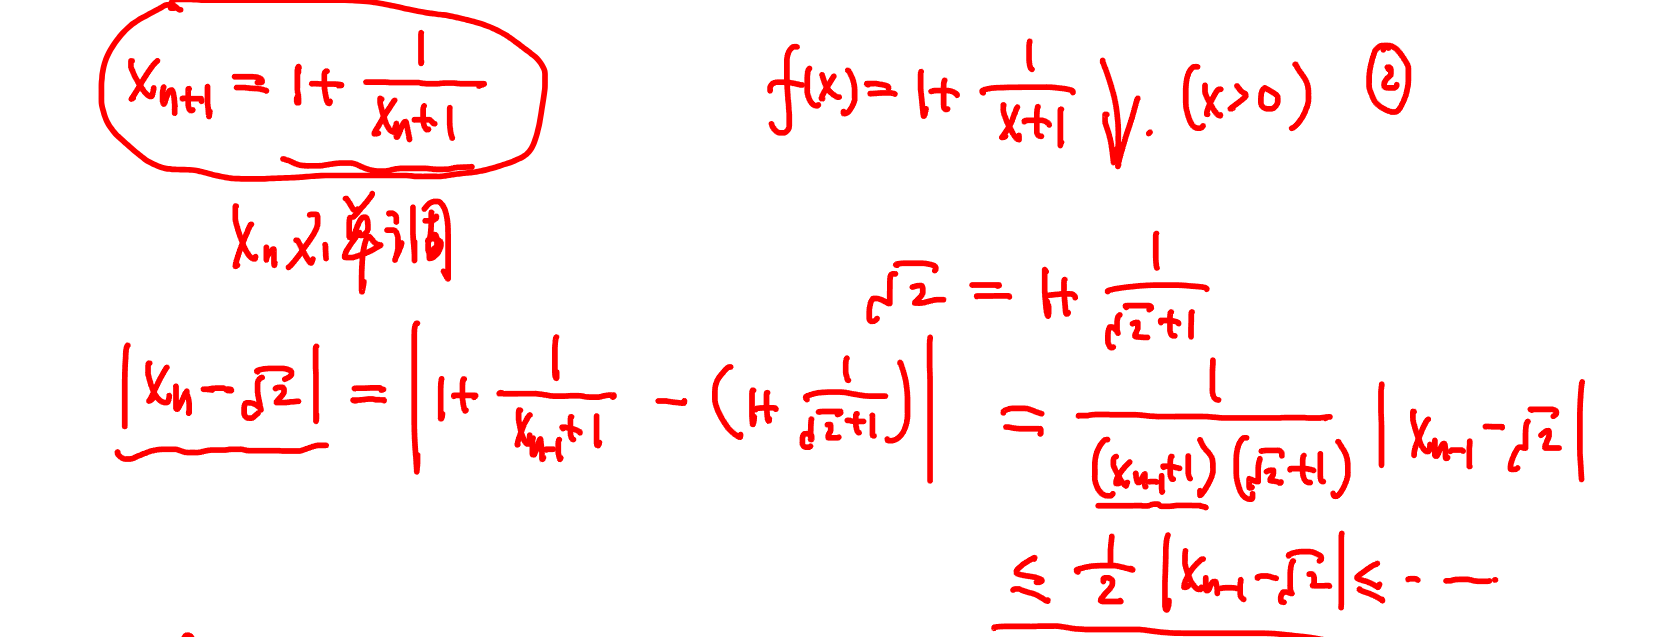 x_{n+1} = 1 + \frac{1}{x_n+1}
f(x) = 1 + \frac{1}{x+1} ↓. (x>0) ②
x_n 不单调
\sqrt{2} = 1 + \frac{1}{\sqrt{2}+1}
|x_n - \sqrt{2}| = |1 + \frac{1}{x_{n-1}+1} - (1 + \frac{1}{\sqrt{2}+1})| = \frac{1}{(x_{n-1}+1)(\sqrt{2}+1)} |x_{n-1} - \sqrt{2}|
≤ \frac{1}{2} |x_{n-1} - \sqrt{2}| ≤ ----